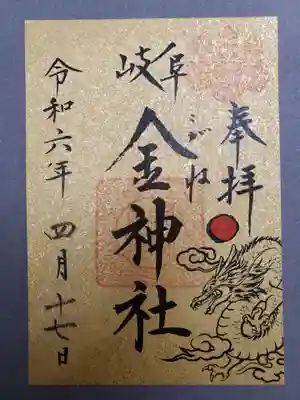 奉拝
岐阜
金神社
こがね
令和六年 四月十七日